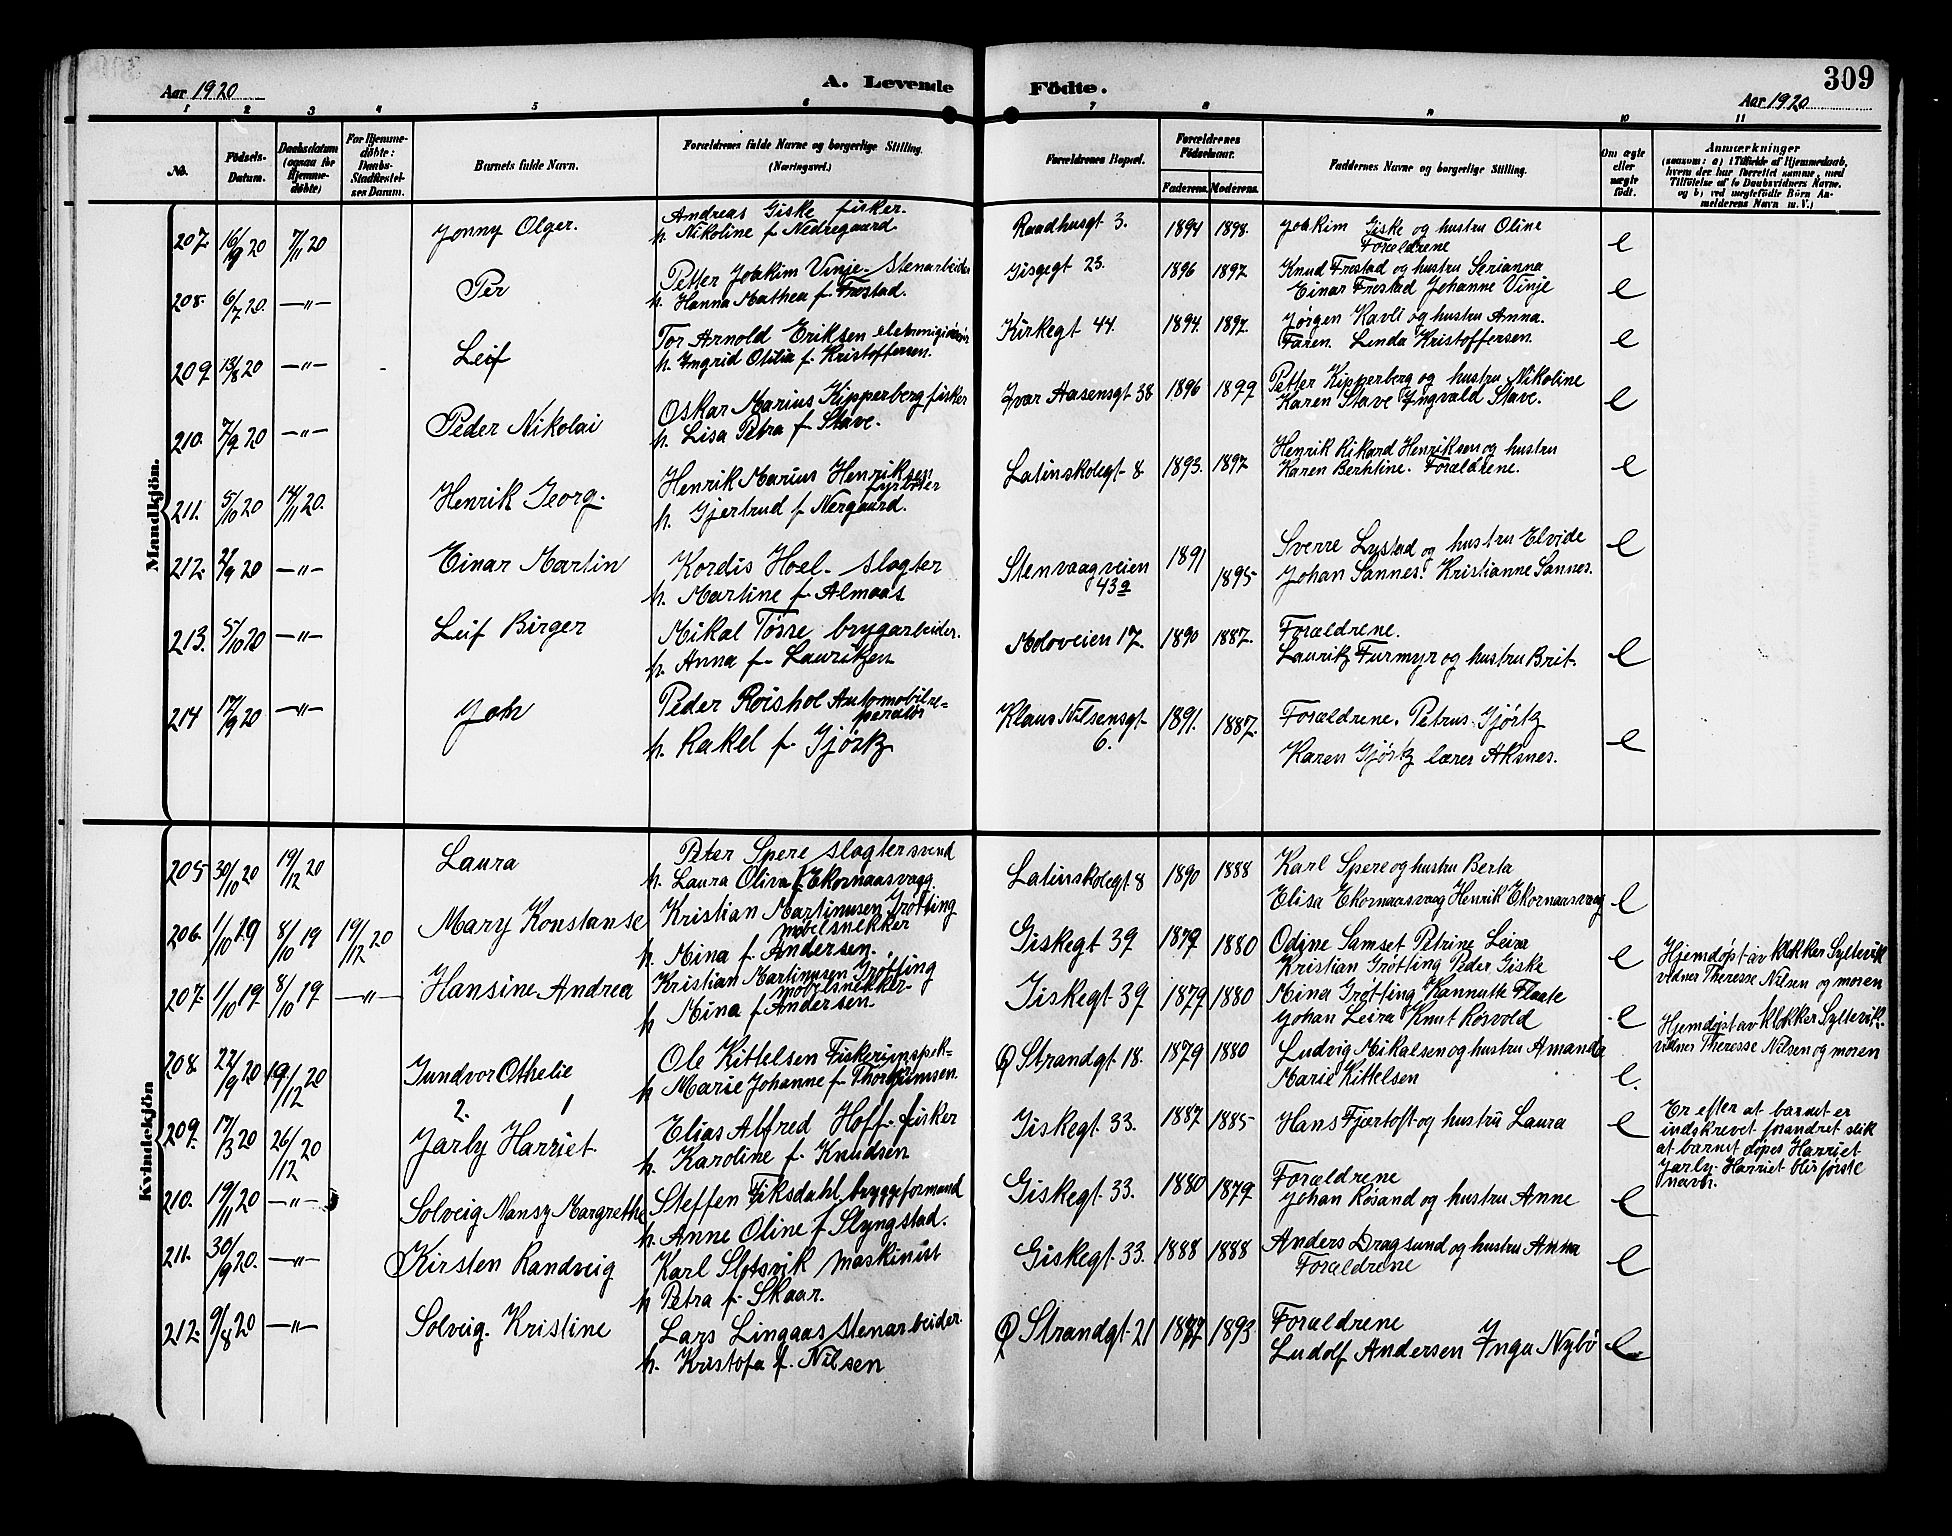 Aar 1920
A. Levende
Födte.
309
Aar 1920
1 2 3 4 5 6 7 8 9 10 11
No.
Födsels-
Datum.
Daabsdatum
(ogsaa for
Hjemme-
döbte)
For Hjemme-
döbte:
Daabs-
Stadfæstel-
ses Datum.
Barnets fulde Navn.
Forældrenes fulde Navne og borgerlige Stilling.
(Næringsvei.)
Forældrenes Bopæl.
Forældrenes
Födselsaar.
Faderens. Moderens.
Faddernes Navne og borgerlige Stilling.
Om ægte
eller
uægte
födt.
Anmærkninger
(saasom: a) i Tilfælde af Hjemmedaab,
hvem der har forrettet samme, med
Tilföielse af to Daabsvidners Navne,
og b) ved uægtefödte Börn An-
melderens Navn m. V.)
Mandkjön.
207. 16/9 20 7/11 20 Jonny Olger. Andreas Giske fisker.
h. Nikoline f. Nedregaard.
Raadhusgt 3. 1894 1898. Joakim Giske og hustru Oline
Forældrene e
208. 6/7 20. —"— Per Petter Joakim Vinje. Stenarbeider
h. Hanna Mathea f. Frestad.
Gisgegt 23. 1896 1897 Knud Frestad og hustru Serianna
Einar Frestad Johanne Vinje e
209 13/8 20 —"— Leif Tor Arnold Eriksen
h. Ingrid Otilia f. Kristoffersen.
Kirkegt 44. 1894. 1897. Jørgen Kavli og hustru Anna.
Faren. Linda Kristoffersen. e
210. 7/9 20 —"— Peder Nikolai Oskar Marius Kipperberg fisker
h. Lisa Petra f. Stave.
Ivar Aasensgt 38 1896 1899 Petter Kipperberg og hustru Nikoline
Karen Stave Ingvald Stave. e
211. 5/10 20 14/11 20. Henrik Georg. Henrik Marius Henriksen
fyrbøter
h. Gjertrud f. Nergaard.
Latinskolegt 8 1893. 1897 Henrik Rikard Henriksen og hustru
Karen Berhtine. Forældrene. e
212. 2/9 20 —"— Einar Martin Kordis Hoel. slagter
h. Martine f. Almaas
Stenvaagveien
43a 1891 1895 Sverre Lystad og hustru Elvide
Johan Sannes. Kristianne Sannes. e
213. 5/10 20 —"— Leif Birger Mikal Tósse brygarbeider.
h. Anna f. Lauritzen
Moloveien 17. 1890 1887. Forældrene.
Lauritz Furmyr og hustru Brit. e
214 17/9 20 —"— Joh Peder Roishol Automobilre-
peratør
h. Rakel f. Gjörtz
Klaus Nilsensgt
6. 1891. 1887. Forældrene. Petrus Gjörtz
Karen Gjörtz lærer Aksnes. e
Kvindekjön
205 30/10 20 19/12 20 Laura Peter Spere slagtersvend
h. Laura Oliva f. Ekornaasvaag
Latinskolegt 8 1890 1888 Karl Spere og hustru Berta
Elisa Ekornaasvaag Henrik Ekornaasvaag e
206. 1/10 19 8/10 19 19/12 20 Mary Konstanse Kristian Martinusen Grøtting
møbelsnekker
h. Mina f. Andersen.
Giskegt 39 1879 1880 Odine Samset Petrine Leira
Kristian Grøtting Peder Giske e
Hjemdøpt av klokker Syltevik
vidner Theresse Nilsen og moren
207. 1/10 19. 8/10 19 —"— Hansine Andrea Kristian Martinusen Grøtting
møbelsnekker
h Mina f Andersen
Giskegt 39 1879 1880 Mina Grøtting Kannutte Flaate
Johan Leira Knut Rösvold e
Hjemdøpt av klokker Syltevik.
vidner Theresse Nilsen og moren
208. 22/9 20 19/12 20 Gundvor Othelie Ole Kittelsen Fiskeriinspek-
h. Marie Johanne f. Thorkrimsen.
Ø Strandgt 18. 1879 1880 Ludvig Mikalsen og hustru Amanda
Marie Kittelsen e.
209. 17/3 20 26/12 20 2. 1
Jarly Harriet Elias Alfred Hoff. fisker
h. Karoline f. Knudsen
Giskegt 33. 1887 1885 Hans Fjærtoft og hustru Laura e
Er efter at barnet er
indskrevet forandret slik
at barnet døpes Harriet
Jarly. Harriet blir første
navn.
210. 19/11 20 —"— Solveig Nansy Margrethe Steffen Fiksdahl bryggeformand
h. Anne Oline f Slyngstad.
Giskegt 33. 1880 1879 Forældrene
Johan Rösand og hustru Anne e
211. 30/9 20. —"— Kirsten Randveig Karl Slotsvik maskinist
h Petra f. Skaar.
Giskegt 33. 1888 1888 Anders Dragsund og hustru Anna
Forældrene e
212. 9/8 20 —"— Solveig. Kristine Lars Lingaas Stenarbeider
h. Kristofa f. Nilsen
Ø Strandgt 21 1887 1893 Forældrene
Ludolf Andersen Inga Nybö e